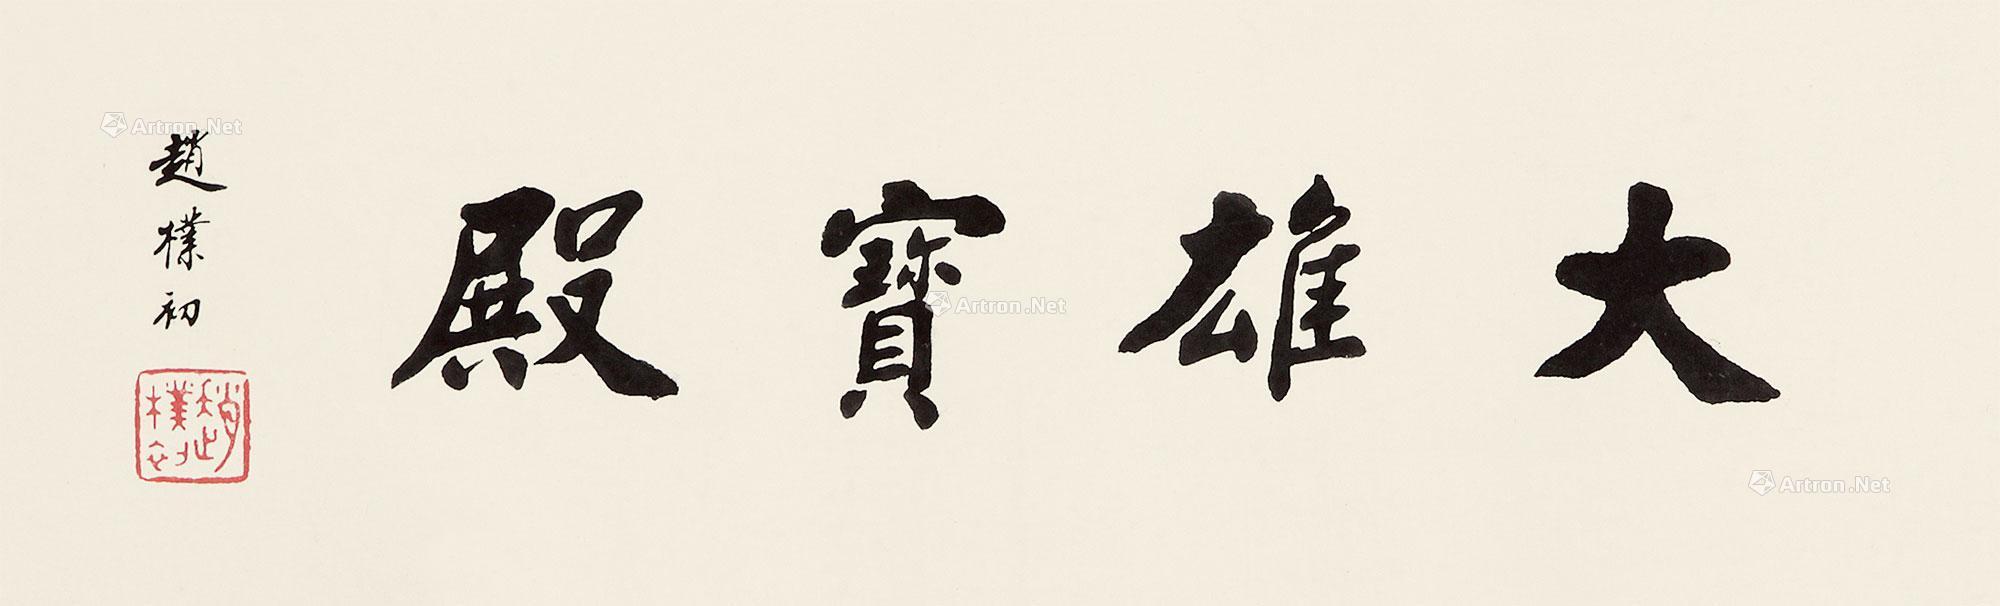 大雄寶殿
趙樸初
趙樸初
Artron.Net
Artron.Net
Artron.Net